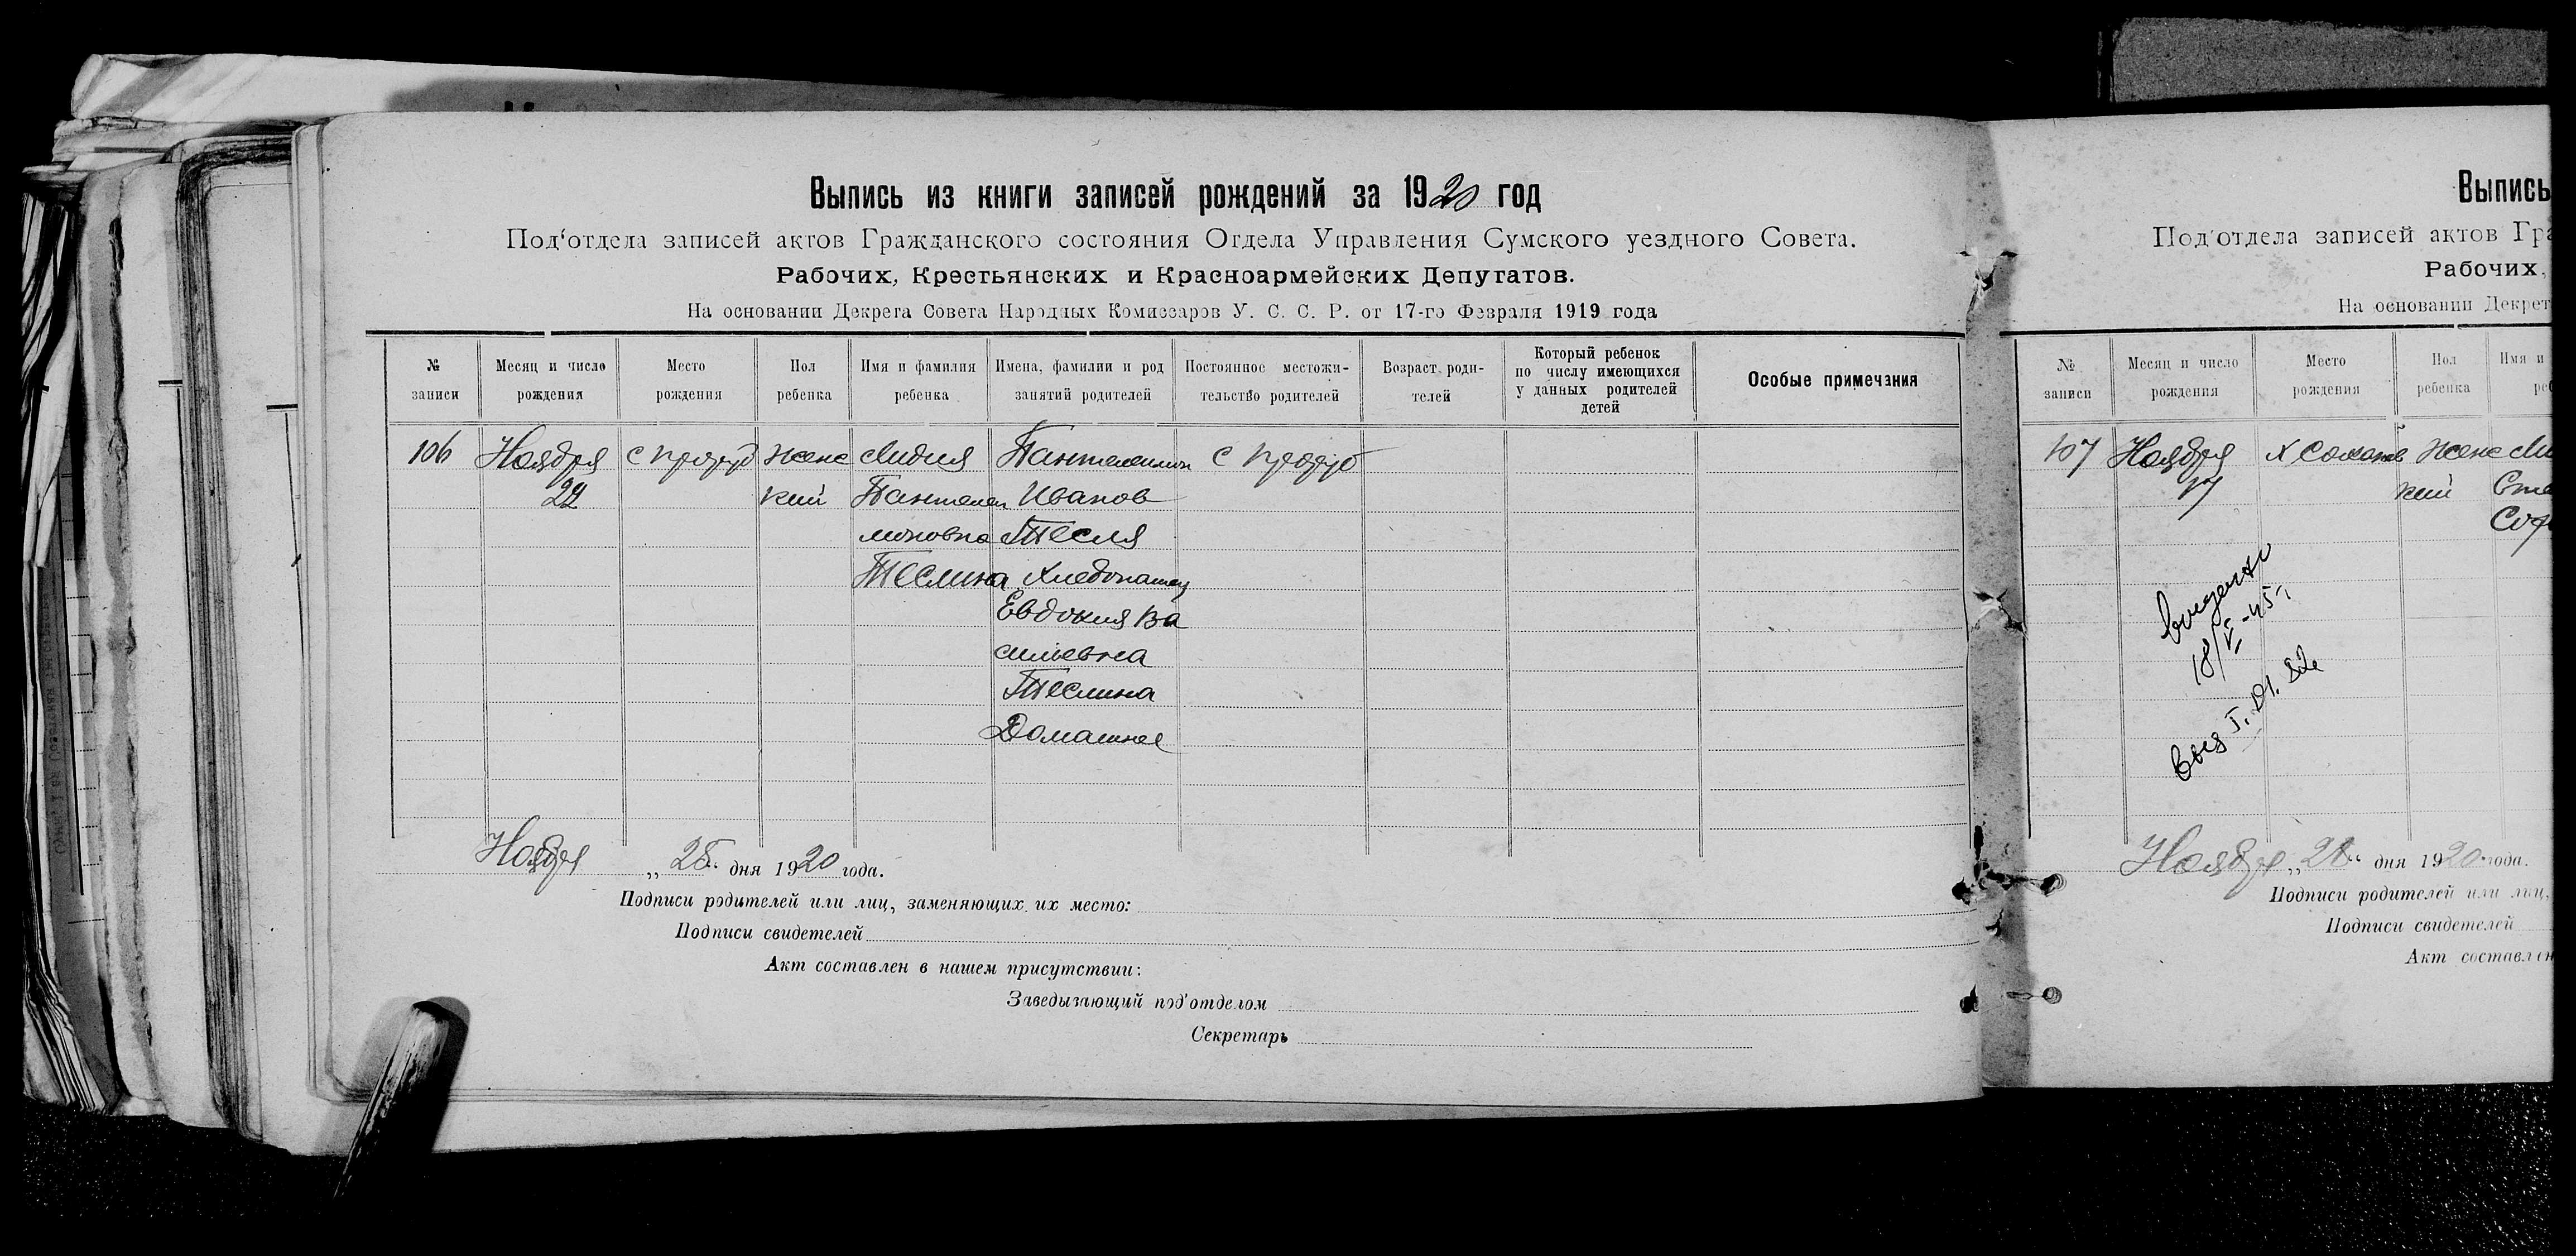 Выпись из книги записей рождений за 1920 год
Под‘отдела записей актов Гражданского состояния Отдела Управления Сумского уездного Совета.
Рабочих, Крестьянских и Красноармейских Депутатов.
На основании Декрета Совета Народных Комиссаров У. С. С. Р. от 17-го Февраля 1919 года
№ записи
Месяц и число рождения
Место рождения
Пол ребенка
Имя и фамилия ребенка
Имена, фамилии и род занятий родителей
Постоянное местожи-
тельство родителей
Возраст роди-
телей
Который ребенок
по числу имеющихся
у данных родителей
детей
Особые примечания
106 Ноября с женс Лидия с
22 кий Пантелеи Иванов
моновна Тесля
Теслина Хлебопашец
Евдокия Ва
сильевна
Теслина
Домашнее
Ноября „ 25 “ дня 1920 года.
Подписи родителей или лиц, заменяющих их место:
Подписи свидетелей
Акт составлен в нашем присутствии:
Заведызающий под‘отделом
Секретарь
Выпись
Под‘отдела записей актов Гра
Рабочих,
На основании Декрет
№ записи
Месяц и число рождения
Место рождения
Пол ребенка
Имя и
реб
107 Ноября х женс Ли
17 кий Сте
Соф
выдано
18/V-45 г.
Ноября „ 28 “ дня 1920 года.
Подписи родителей или лиц,
Подписи свидетелей
Акт составлен